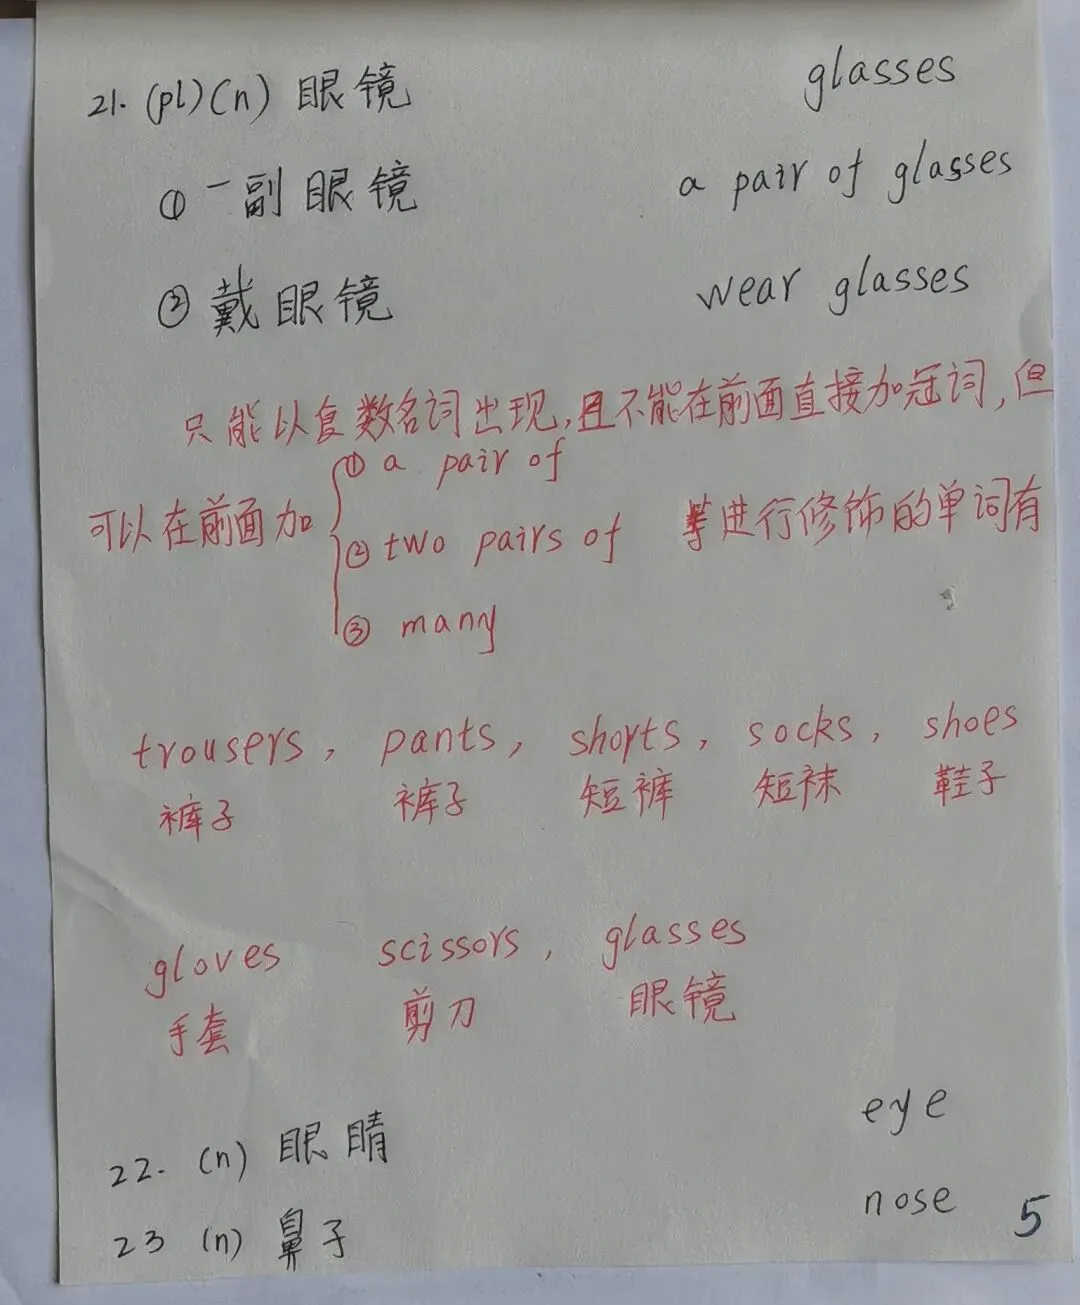 21. (pl)(n) 眼镜 glasses
① 一副眼镜 a pair of glasses
② 戴眼镜 wear glasses
只能以复数名词出现,且不能在前面直接加冠词,但
可以在前面加 ① a pair of
② two pairs of 等进行修饰的单词有
③ many
trousers, pants, shorts, socks, shoes
裤子 裤子 短裤 短袜 鞋子
gloves scissors, glasses
手套 剪刀 眼镜
22. (n) 眼睛 eye
23 (n) 鼻子 nose
5